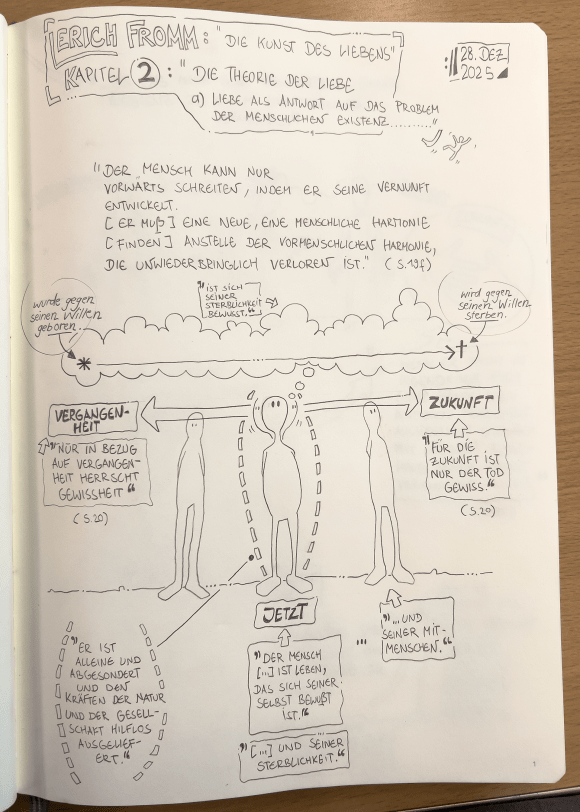 ERICH FROMM: "DIE KUNST DES LIEBENS"
KAPITEL 2: "DIE THEORIE DER LIEBE
a) LIEBE ALS ANTWORT AUF DAS PROBLEM
DER MENSCHLICHEN EXISTENZ.........."
28. DEZ
2025
"DER MENSCH KANN NUR
VORWÄRTS SCHREITEN, INDEM ER SEINE VERNUNFT
ENTWICKELT.
[ER MUß] EINE NEUE, EINE MENSCHLICHE HARMONIE
[FINDEN] ANSTELLE DER VORMENSCHLICHEN HARMONIE,
DIE UNWIEDERBRINGLICH VERLOREN IST." (S.19f)
"IST SICH
SEINER
STERBLICHKEIT
BEWUSST."
wurde gegen
seinen Willen
geboren.
wird gegen
seinen Willen
sterben.
VERGANGEN-
HEIT
"NUR IN BEZUG
AUF VERGANGEN-
HEIT HERRSCHT
GEWISSHEIT"
(S.20)
ZUKUNFT
"FÜR DIE
ZUKUNFT IST
NUR DER TOD
GEWISS."
(S.20)
JETZT
"DER MENSCH
[...] IST LEBEN,
DAS SICH SEINER
SELBST BEWUßT
IST."
"[...] UND SEINER
STERBLICHKEIT."
...
"...UND
SEINER MIT-
MENSCHEN."
"ER IST
ALLEINE UND
ABGESONDERT
UND DEN
KRÄFTEN DER NATUR
UND DER GESELL-
SCHAFT HILFLOS
AUSGELIEF-
ERT."
1